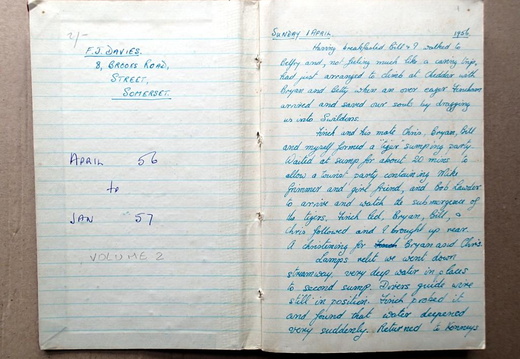 2/-
F.J. DAVIES.
8, BROOKS ROAD,
STREET,
SOMERSET.
APRIL 56
to
JAN 57
VOLUME 2
SUNDAY 1 APRIL. 1956
Having breakfasted Bill & I walked to
Belfry and, no feeling much like a caving trip,
had just arranged to climb at Cheddar with
Bryan and Betty when an over eager Finch
arrived and saved our souls by dragging
us into Swildons.
Finch and his mate Chris, Bryan, Bill
and myself formed a tiger sumping party.
Waited at sump for about 20 mins to
allow a tourist party containing Mike
and girl friend, and Bob Lawder
to arrive and watch the submergence of
the tigers. Finch led, Bryan, Bill, &
Chris followed and I brought up rear.
A christening for Bryan and Chris.
Lamps relit we went down
streamway, very deep water in places
to second sump. Divers guide wire
still in position. Finch probed it
and found that water deepened
very suddenly. Returned to